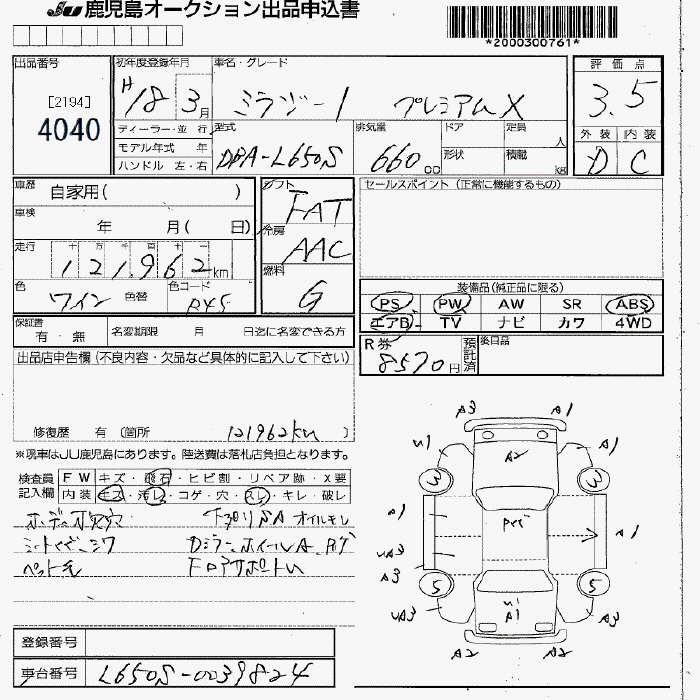 JU 鹿児島オークション出品申込書
*2000300761*
出品番号
[2194]
4040
初年度登録年月
H18 3月
車名・グレード
ミラジーノ プレミアムX
評価点
3.5
外装 内装
D C
ディーラー・並行
モデル年式 年
ハンドル 左・右
型式
DBA-L650S
排気量
660 CC
ドア
形状
定員
人
積載
kg
車歴
自家用( )
車検
年 月( 日)
走行
十 万 千 百 十 一
121,962km
色
ワイン 色替
色コード
R45
シフト
FAT
冷房
AAC
燃料
G
セールスポイント (正常に機能するもの)
装備品(純正品に限る)
PS PW AW SR ABS
エアB TV ナビ カワ 4WD
保証書
有・無
名変期限 月 日迄に名変できる方
R券
8570円
預託済
後日品
出品店申告欄 (不良内容・欠品など具体的に記入して下さい)
修復歴 有 (箇所 121962km )
※現車はJU鹿児島にあります。陸送費は落札店負担となります。
検査員記入欄
FW キズ・飛石・ヒビ割・リペア跡・X要
内装 キズ・汚レ・コゲ・穴・スレ・キレ・破レ
オイルモレ
Dミラー、ホイールA
ペット毛
A3 A1
U1 A1
A2
3 3
A1
A1
UA3
A3
5 5
UA3 A3
U1
A1
A2 A2
登録番号
車台番号 L650S-0039824